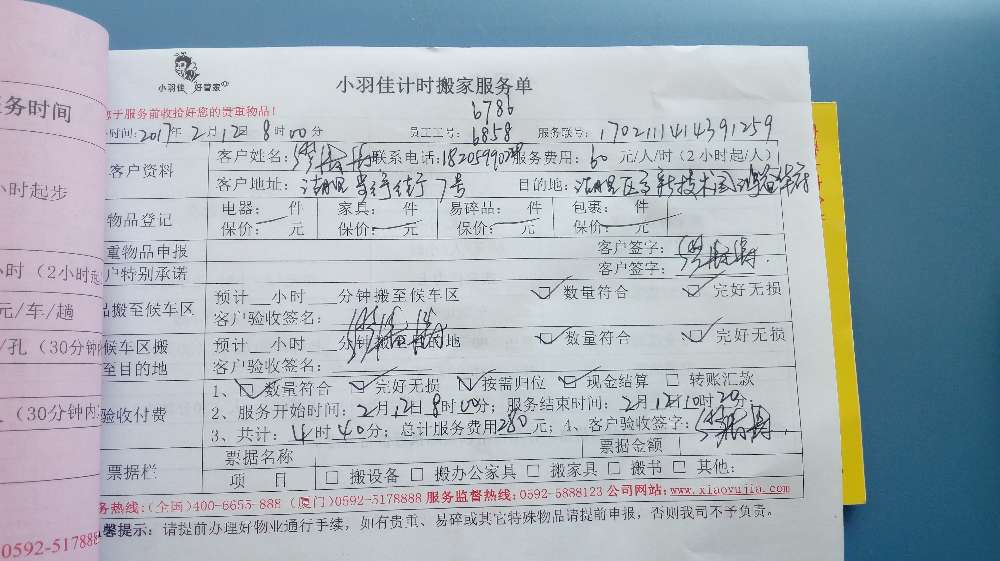 小羽佳 好管家
小羽佳计时搬家服务单
务时间
于服务前收拾好您的贵重物品!
6786
时间:2017年2月12日8时00分 员工工号: 6858 服务联号:1702111414391259
客户资料
客户姓名: 联系电话: 服务费用:60元/人/时(2小时起/人)
小时起步
客户地址: 7号 目的地:
物品登记
电器: 件 家具: 件 易碎品: 件 包裹: 件
保价: 元 保价: 元 保价: 元 保价: 元
重物品申报 客户签字:
小时(2小时起
户特别承诺 客户签字:
元/车/趟
品搬至候车区
预计__小时 ___分钟搬至候车区 数量符合 完好无损
客户验收签名:
/孔(30分钟
候车区搬
至目的地
预计__小时 ___分钟搬至目的地 数量符合 完好无损
客户验收签名:
(30分钟内
验收付费
1、 数量符合 完好无损 按需归位 现金结算 □ 转账汇款
2、服务开始时间:2月12日8时00分;服务结束时间:2月12日10时20分;
3、共计:4时40分;总计服务费用280元;4、客户验收签字:
票据栏
票据名称 票据金额
项 目 □ 搬设备 □ 搬办公家具 □ 搬家具 □ 搬书 □ 其他:
务热线:(全国)400-6655-888 (厦门)0592-5178888 服务监督热线:0592-5888123 公司网站:www.xiaoyujia.com
0592-517888
馨提示:请提前办理好物业通行手续,如有贵重、易碎或其它特殊物品请提前申报,否则我司不予负责。